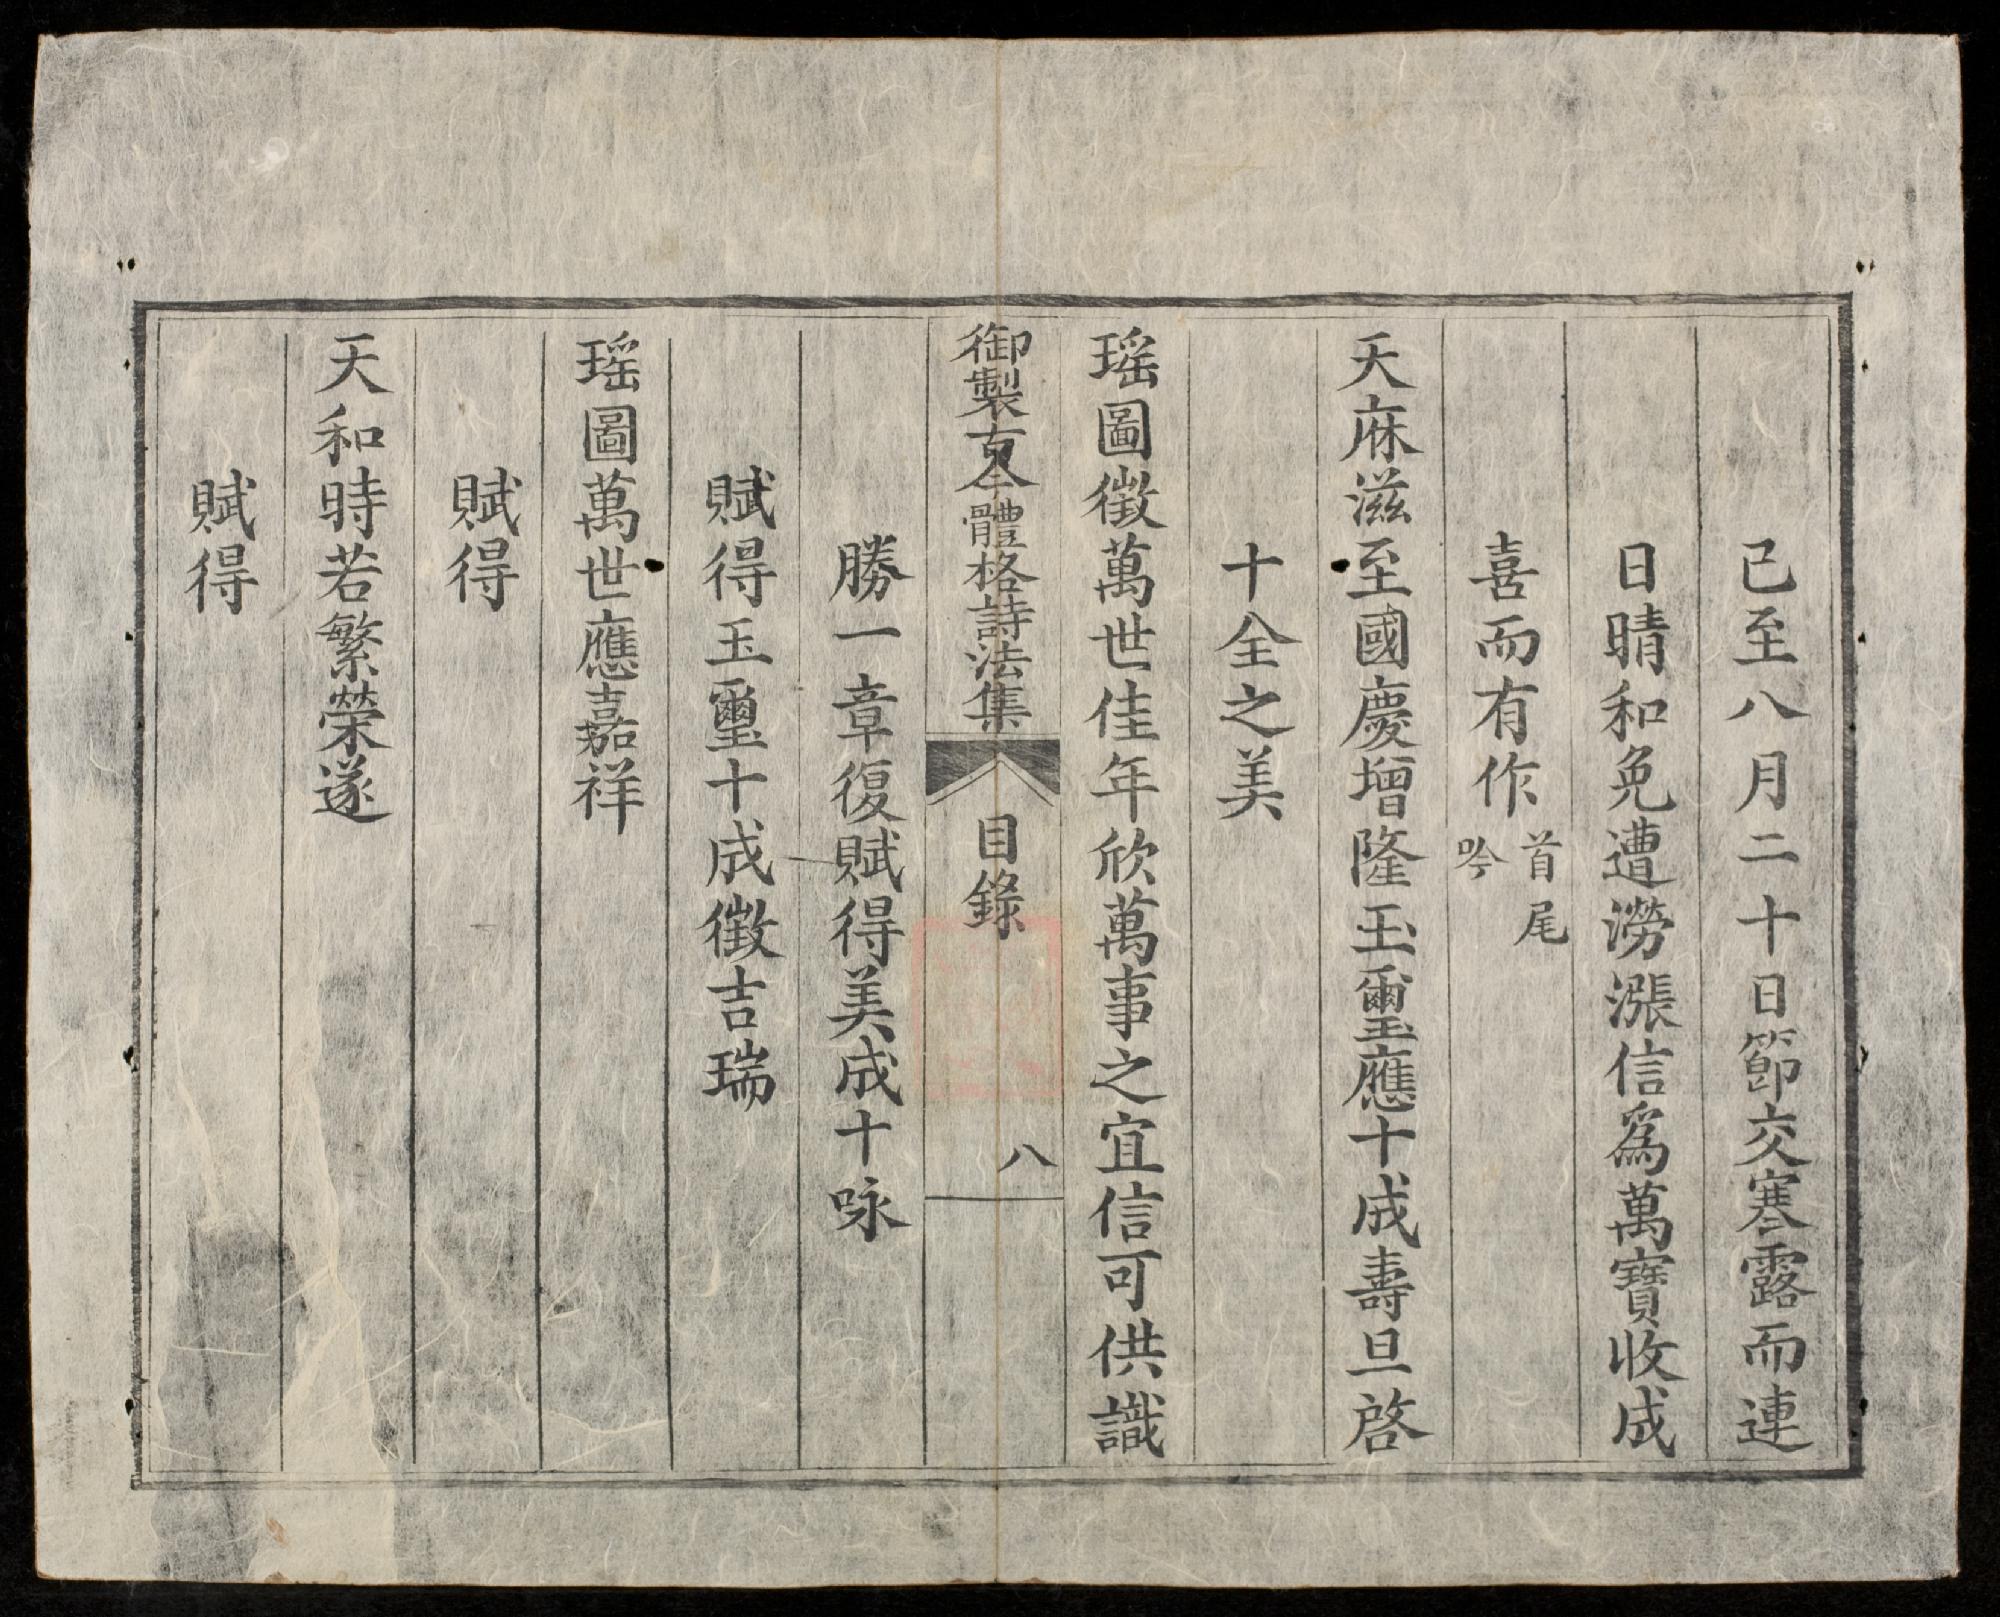 已至八月二十日節交寒露而連
日晴和免遭澇漲信爲萬寶收成
喜而有作首尾吟
天庥滋至國慶增隆玉璽應十成壽旦啓
十全之美
瑶圖徵萬世佳年欣萬事之宜信可供識
御製古今體格詩法集 目錄 八
勝一章復賦得美成十咏
賦得玉璽十成徵吉瑞
瑶圖萬世應嘉祥
賦得
天和時若繁榮遂
賦得